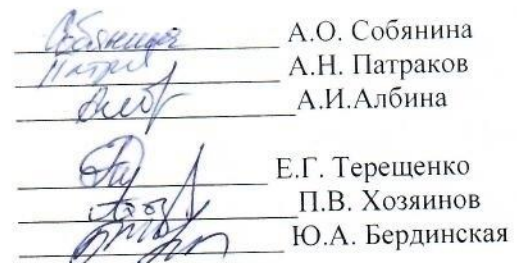 А.О. Собянина
А.Н. Патраков
А.И.Албина
Е.Г. Терещенко
П.В. Хозяинов
Ю.А. Бердинская